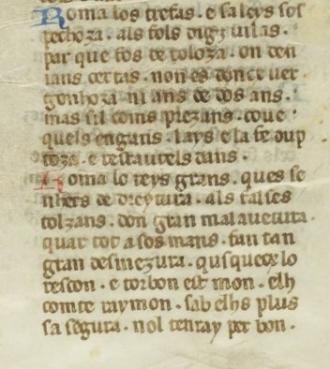 Roma los trefas · e sa leys sos
pechoza · als fols digz uilas.
par que fos de toloza · on den
ians certas · non es donc uer
gonhoza · ni ans de dos ans ·
mas sil coms prezans · coue ·
quels engans · lays e la fe dup
toza · e restaurels dans.
Roma lo reys grans · ques se
nhers de dreytura · als falses
tolzans · don gran malauetura ·
quar tot a sos mans · fan tan
gran desmezura · qusquecx lo
rescon · e torbon est mon · elh
comte raymon · sab elhs plus
sa segura · nol tenray per bon ·